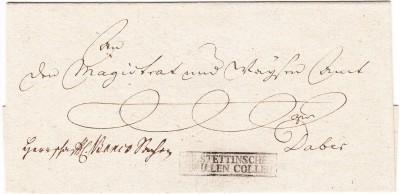 An
den Magistrat und Waysen Amt
zu
Daber
Herrschaftl. Franco Sachen
STETTINSCHE
PUPILLEN COLLEG